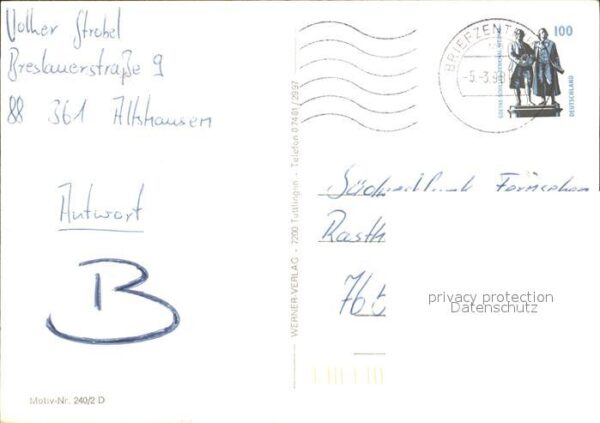 Volker Strobel
Breslauerstraße 9
88 361 Altshausen
Antwort
B
Motiv-Nr. 240/2 D
WERNER-VERLAG - 7200 Tuttlingen - Telefon 07461/2997
BRIEFZENT
-5.-3.9
GOETHE-SCHILLER-DENKMAL WEIMAR
100
DEUTSCHLAND
Fernsehen
Rasth
76
privacy protection
Datenschutz